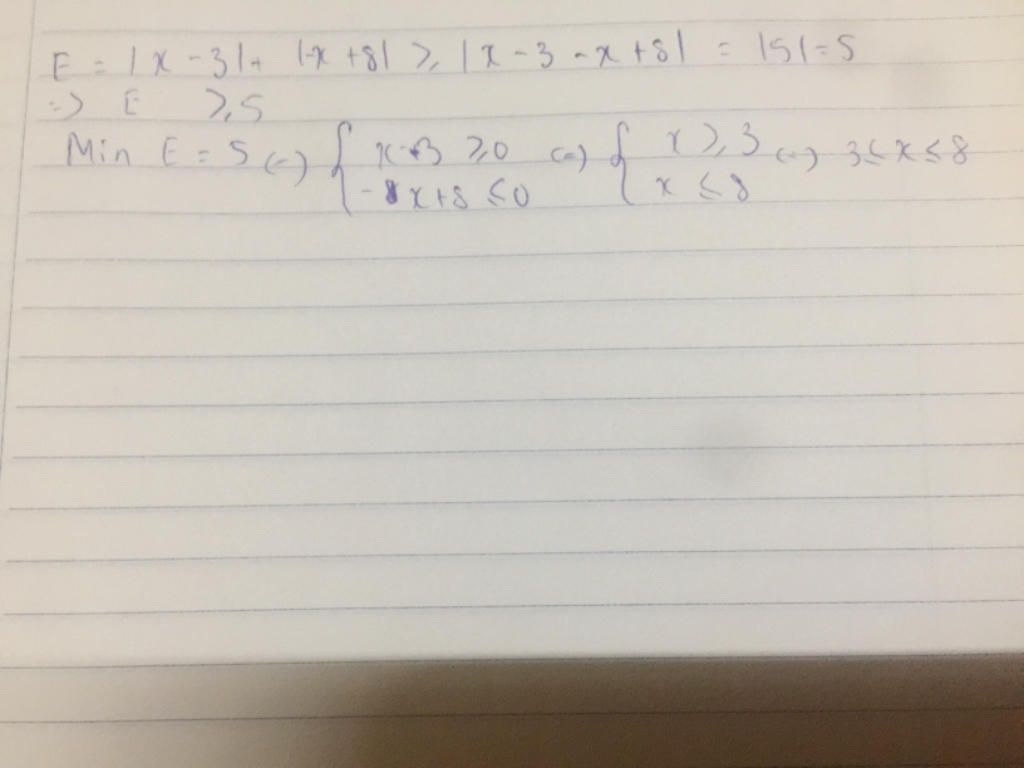 E = |x - 3| + |-x + 8| ≥ |x - 3 - x + 8| = |5| = 5
=> E ≥ 5
Min E = 5 <=> { x - 3 ≥ 0 <=> { x ≥ 3 <=> 3 ≤ x ≤ 8
- x + 8 ≤ 0 x ≤ 8